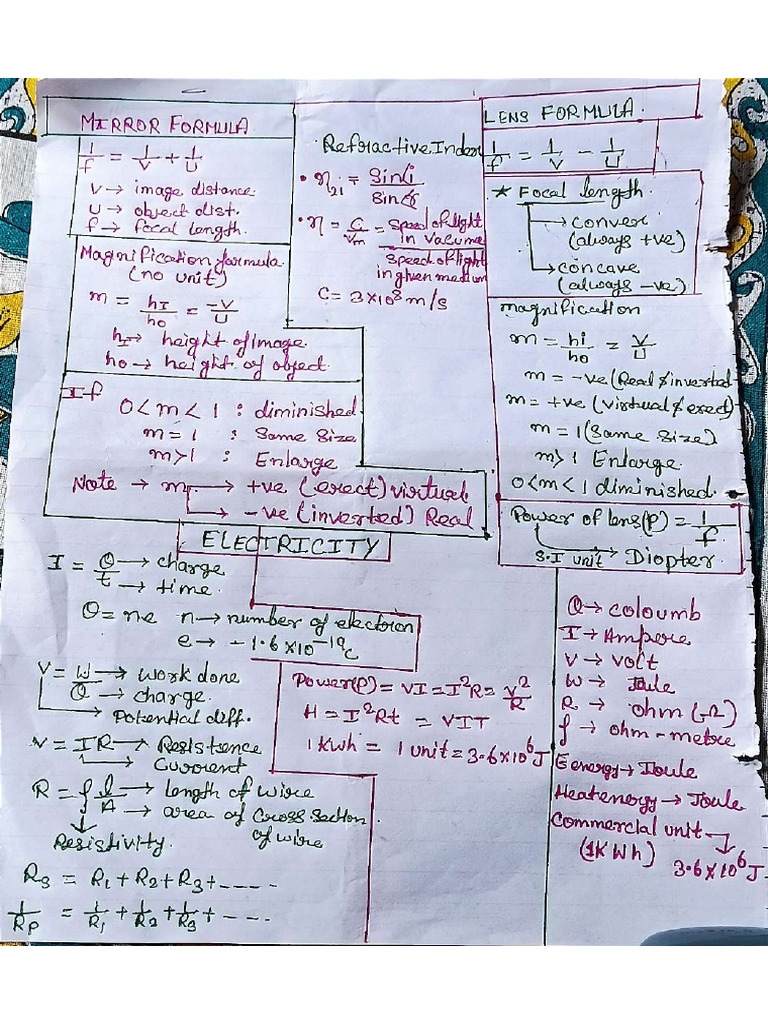 MIRROR FORMULA
1/f = 1/V + 1/U
V → image distance.
U → object dist.
f → focal length.
Magnification formula
(no unit)
m = hI/ho = -V/U
hI → height of image.
ho → height of object.
If
0 < m < 1 : diminished
m = 1 : Same Size
m > 1 : Enlarge
Note → m → +ve (erect) virtual
→ -ve (inverted) Real
Refractive Index
• η21 = Sin∠i / Sin∠r
• η = C/Vm = Speed of light in Vacume / Speed of light in given medium
C = 3×10⁸ m/s
LENS FORMULA.
1/f = 1/V - 1/U
★ Focal length.
→ convex
(always +ve)
→ concave
(always -ve)
magnification
m = hi/ho = V/U
m = -ve (Real & inverted
m = +ve (virtual & erect)
m = 1 (Same size)
m > 1 Enlarge.
0 < m < 1 diminished.
Power of lens (P) = 1/f.
S.I unit → Diopter.
ELECTRICITY
I = Q/t → charge
→ time.
Q = ne n → number of electron
e → -1.6×10⁻¹⁹C
V = W/Q → work done
→ charge.
→ Potential diff.
V = IR → Resistence
→ Current
R = ρ l/A → length of wire
→ area of cross section
of wire
Resistivity.
Rs = R1 + R2 + R3 + ----
1/Rp = 1/R1 + 1/R2 + 1/R3 + ----
Power(P) = VI = I²R = V²/R
H = I²Rt = VIT
1 kwh = 1 unit = 3.6×10⁶ J
Q → coloumb
I → Ampere
V → Volt
W → Joule
R → ohm (Ω)
ρ → ohm-metre
Eenergy → Joule
Heat energy → Joule
Commercial unit
(1KWh) → 3.6×10⁶ J